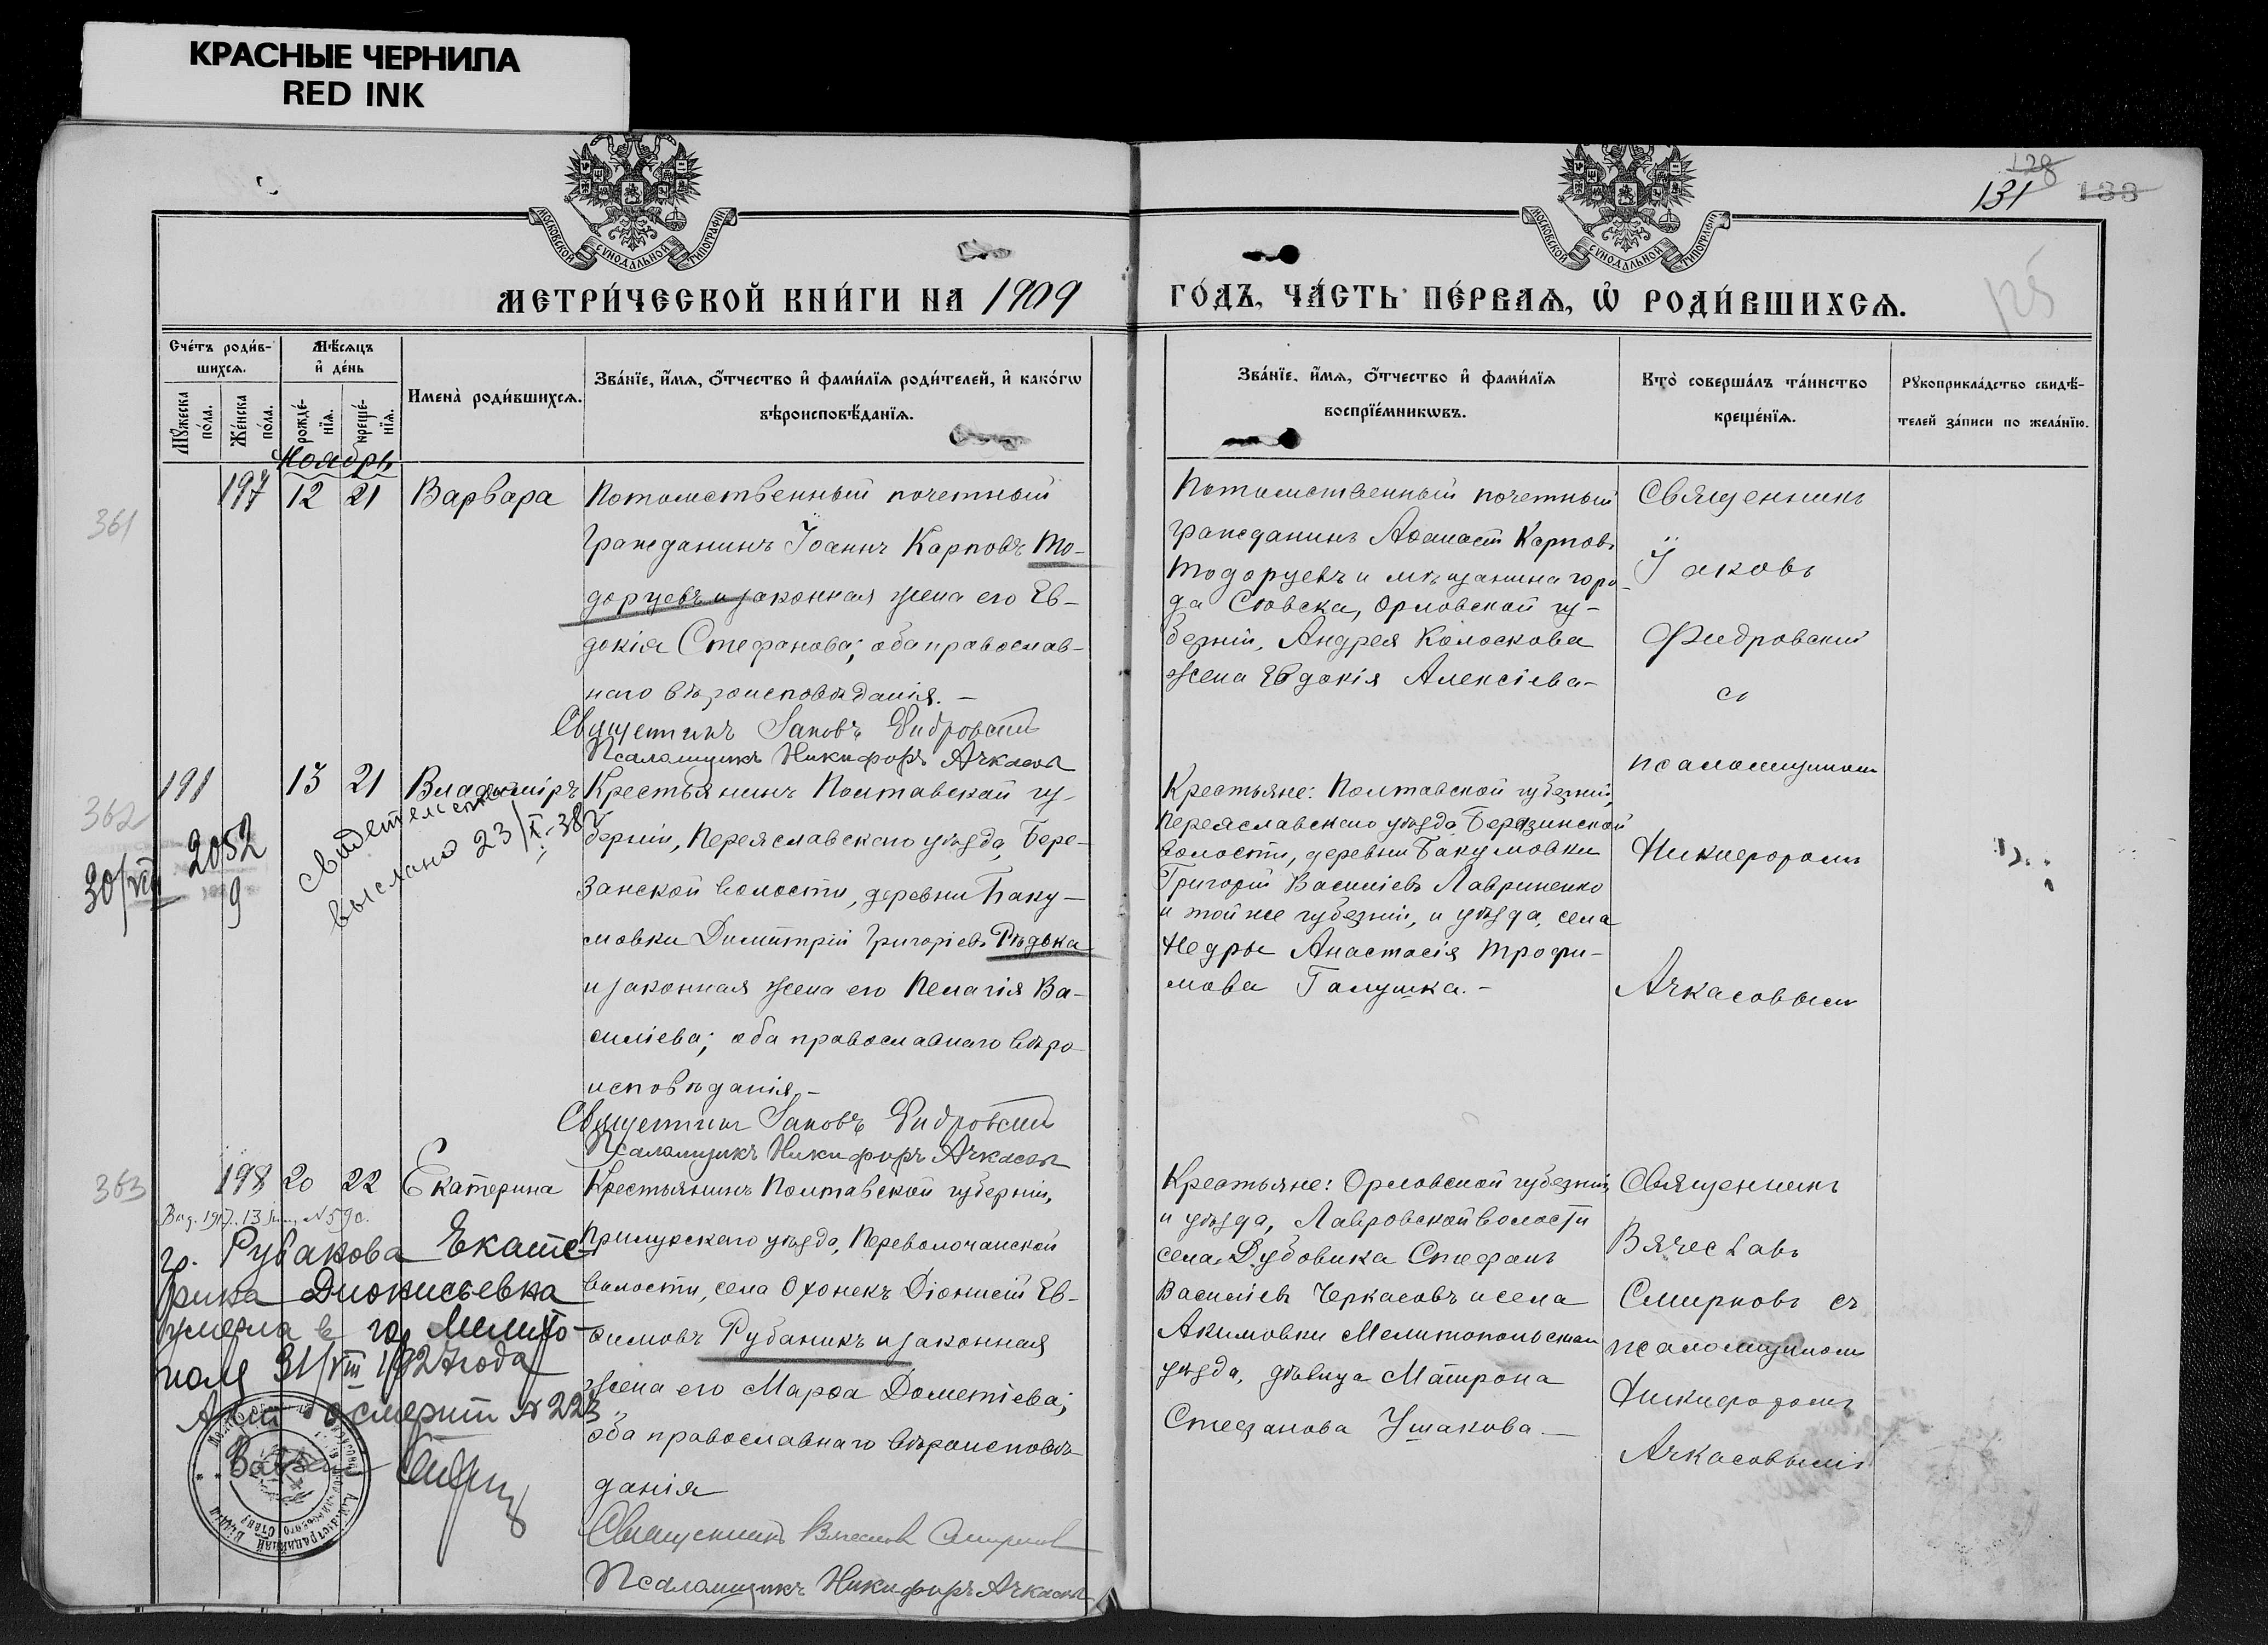 КРАСНЫЕ ЧЕРНИЛА
RED INK
128
131
133
125
МОСКОВСКОЙ СУНОДАЛЬНОЙ ТИПОГРАФІИ
МОСКОВСКОЙ СУНОДАЛЬНОЙ ТИПОГРАФІИ
МЕТРИ́ЧЕСКОЙ КНИ́ГИ НА 1909
ГО́ДЪ, ЧА́СТЬ ПЕ́РВАѦ, Ѽ РОДИ́ВШИХСѦ.
Сче́тъ роди́в-
шихсѧ.
Мѣ́сѧцъ
и҆ де́нь
Мꙋ́жеска по́ла.
Же́нска по́ла.
рожде́-нїѧ.
креще́-нїѧ.
Имена̀ роди́вшихсѧ.
Зва́нїе, и҆́мѧ, ѻ҆́тчество и҆ фами́лїѧ роди́телей, и҆ како́гѡ
вѣроисповѣ́данїѧ.
Зва́нїе, и҆́мѧ, ѻ҆́тчество и҆ фами́лїѧ
воспрїе́мникѡвъ.
Кто̀ соверша́лъ та́инство
креще́нїѧ.
Рꙋкоприкла́дство свидѣ́-
телей за́писи по жела́нїю.
Ноябрь
361
197 12 21 Варвара
Потомственный почетный
гражданинъ Іоаннъ Карповъ То-
доруевъ и законная жена его Ев-
докія Стефанова; оба православ-
наго вѣроисповѣданія. –
Священникъ Іаковъ Ѳидровскій
Псаломщикъ Никифоръ Ачкасов
Потомственный почетный
гражданинъ Аѳанасій Карповъ
Тодоруевъ и мѣщанина горо-
да Сѣвска, Орловской гу-
берніи, Андрея Колоскова
жена Евдокія Алексіева –
Священникъ
Іаковъ
Ѳидровскій
съ
псаломщикомъ
Никифоромъ
Ачкасовымъ
362
191 13 21 Владиміръ
30/VII 2052
9
Свидетельство
выслано 23/X-38г
Крестьянинъ Полтавской гу-
берніи, Переяславскаго уѣзда, Бере-
занской волости, деревни Баку-
мовки Димитрій Григоріевъ Рѣдька
и законная жена его Пелагія Ва-
силіева; оба православнаго вѣро-
исповѣданія. –
Священникъ Іаковъ Ѳидровскій
Псаломщикъ Никифоръ Ачкасов
Крестьяне: Полтавской губерніи,
Переяславскаго уѣзда Березинской
волости, деревни Бакумовки
Григорій Василіевъ Лавриненко
и той же губерніи, и уѣзда, села
Недры Анастасія Трофи-
мова Галушка. –
363
198 20 22 Екатерина
Выд. 1917. 13 № 590.
гр. Рубакова Екате-
рина Дионисьевна
умерла в гор Мелито-
поле 31/VIII 1927 года
Акт о смерти № 223
Крестьянинъ Полтавской губерніи,
Прилукскаго уѣзда, Переволочанской
волости, села Охонекъ Діонисій Ев-
симовъ Рубаникъ и законная
жена его Марѳа Дометіева;
оба православнаго вѣроисповѣ-
данія
Священникъ Вячеславъ Смирновъ
Псаломщикъ Никифоръ Ачкасов
Крестьяне: Орловской губерніи,
и уѣзда, Лавровской волости
села Дубовика Стефанъ
Василіевъ Черкасовъ и села
Акимовки Мелитопольскаго
уѣзда, дѣвица Матрона
Стефанова Ушакова. –
Священникъ
Вячеславъ
Смирновъ съ
псаломщикомъ
Никифоромъ
Ачкасовымъ